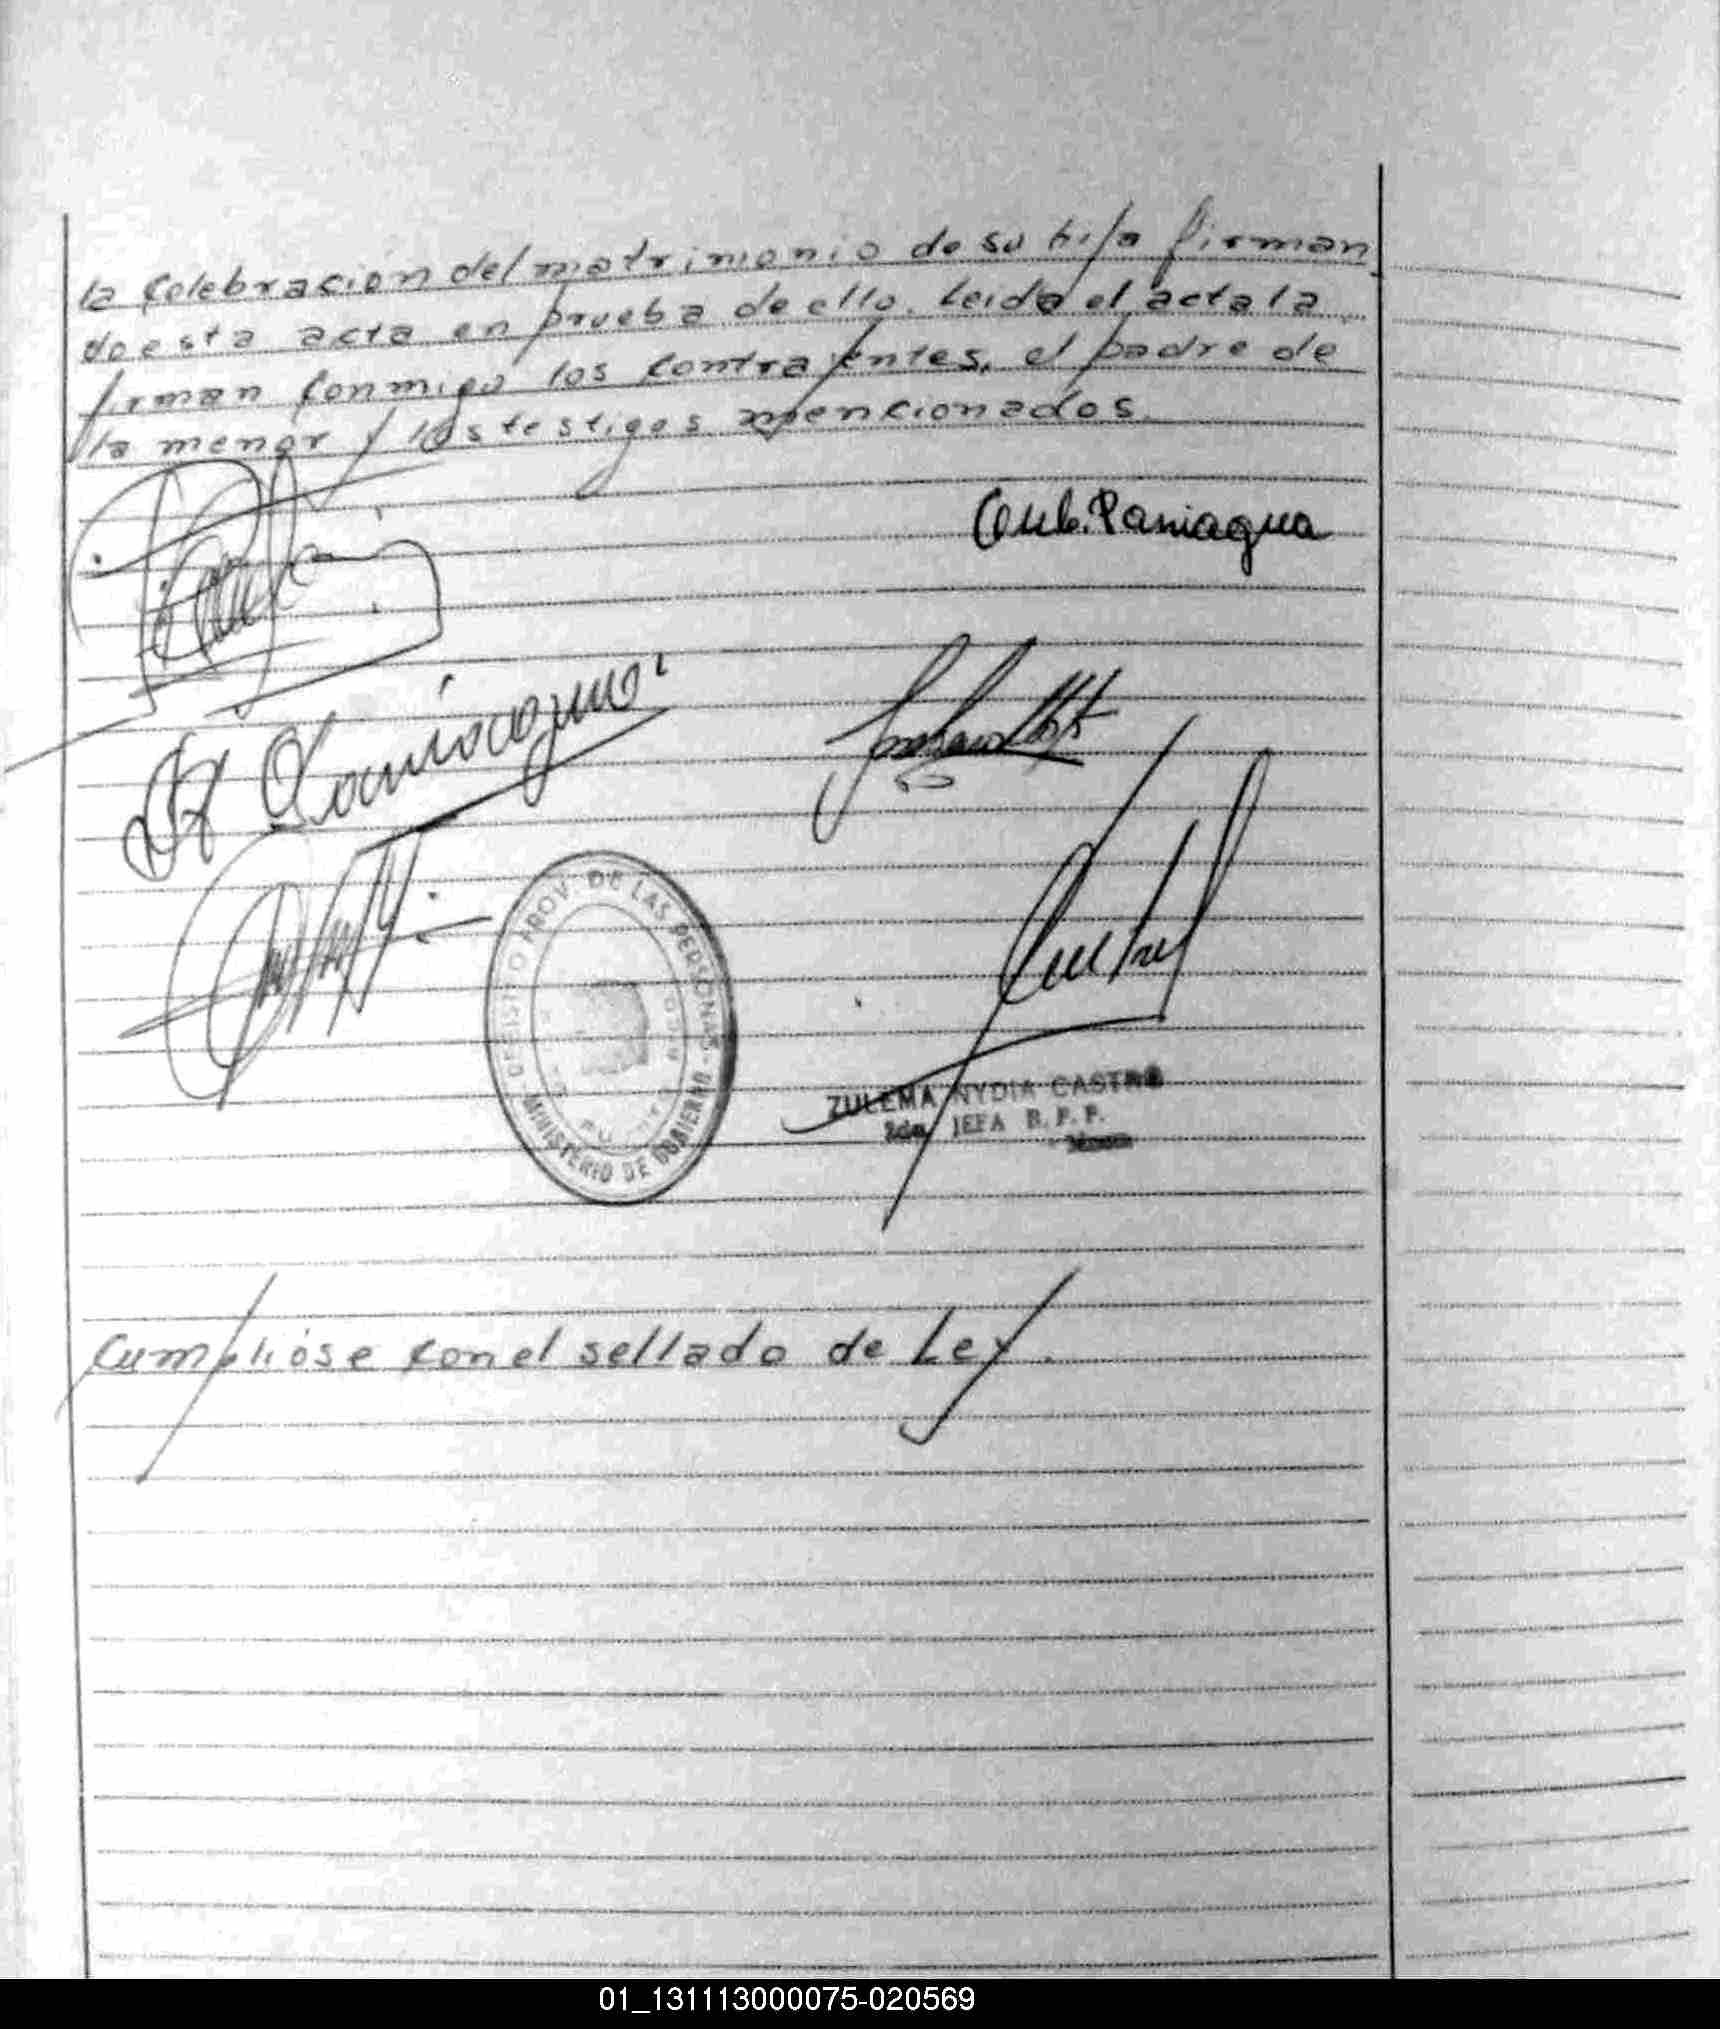 la celebración del matrimonio de su hija firman
do esta acta en prueba de ello. Leida el acta la
firman conmigo los contrayentes, el padre de
la menor y los testigos mencionados.
Paniagua
REGISTRO PROV. DE LAS PERSONAS
MINISTERIO DE GOBIERNO
ZULEMA NYDIA CASTRO
2da. JEFA R. P. P.
Cumplióse con el sellado de Ley.
01_131113000075-020569